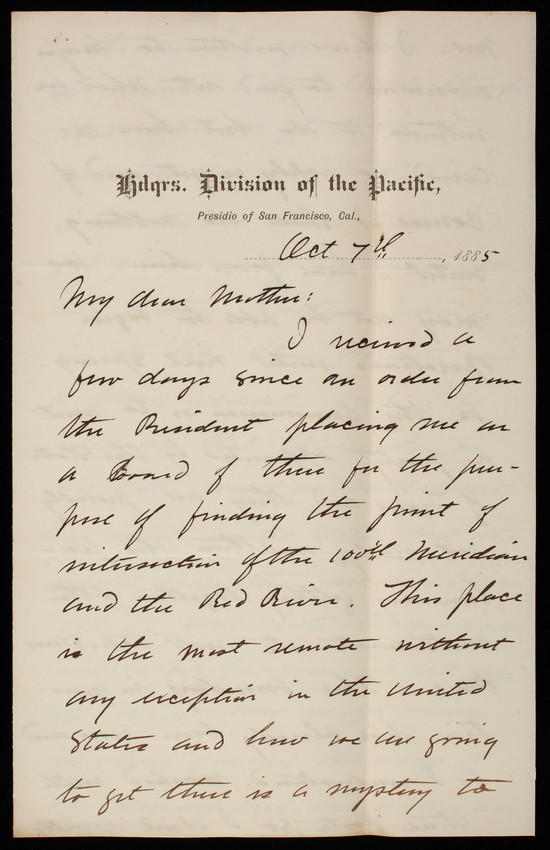 Hdqrs. Division of the Pacific,
Presidio of San Francisco, Cal.,
Oct 7th, 1885
My dear Mother:
I received a
few days since an order from
the President placing me on
a Board of three for the pur-
pose of finding the point of
intersection of the 100th Meridian
and the Red River. This place
is the most remote without
any exception in the United
States and how we are going
to get there is a mystery to